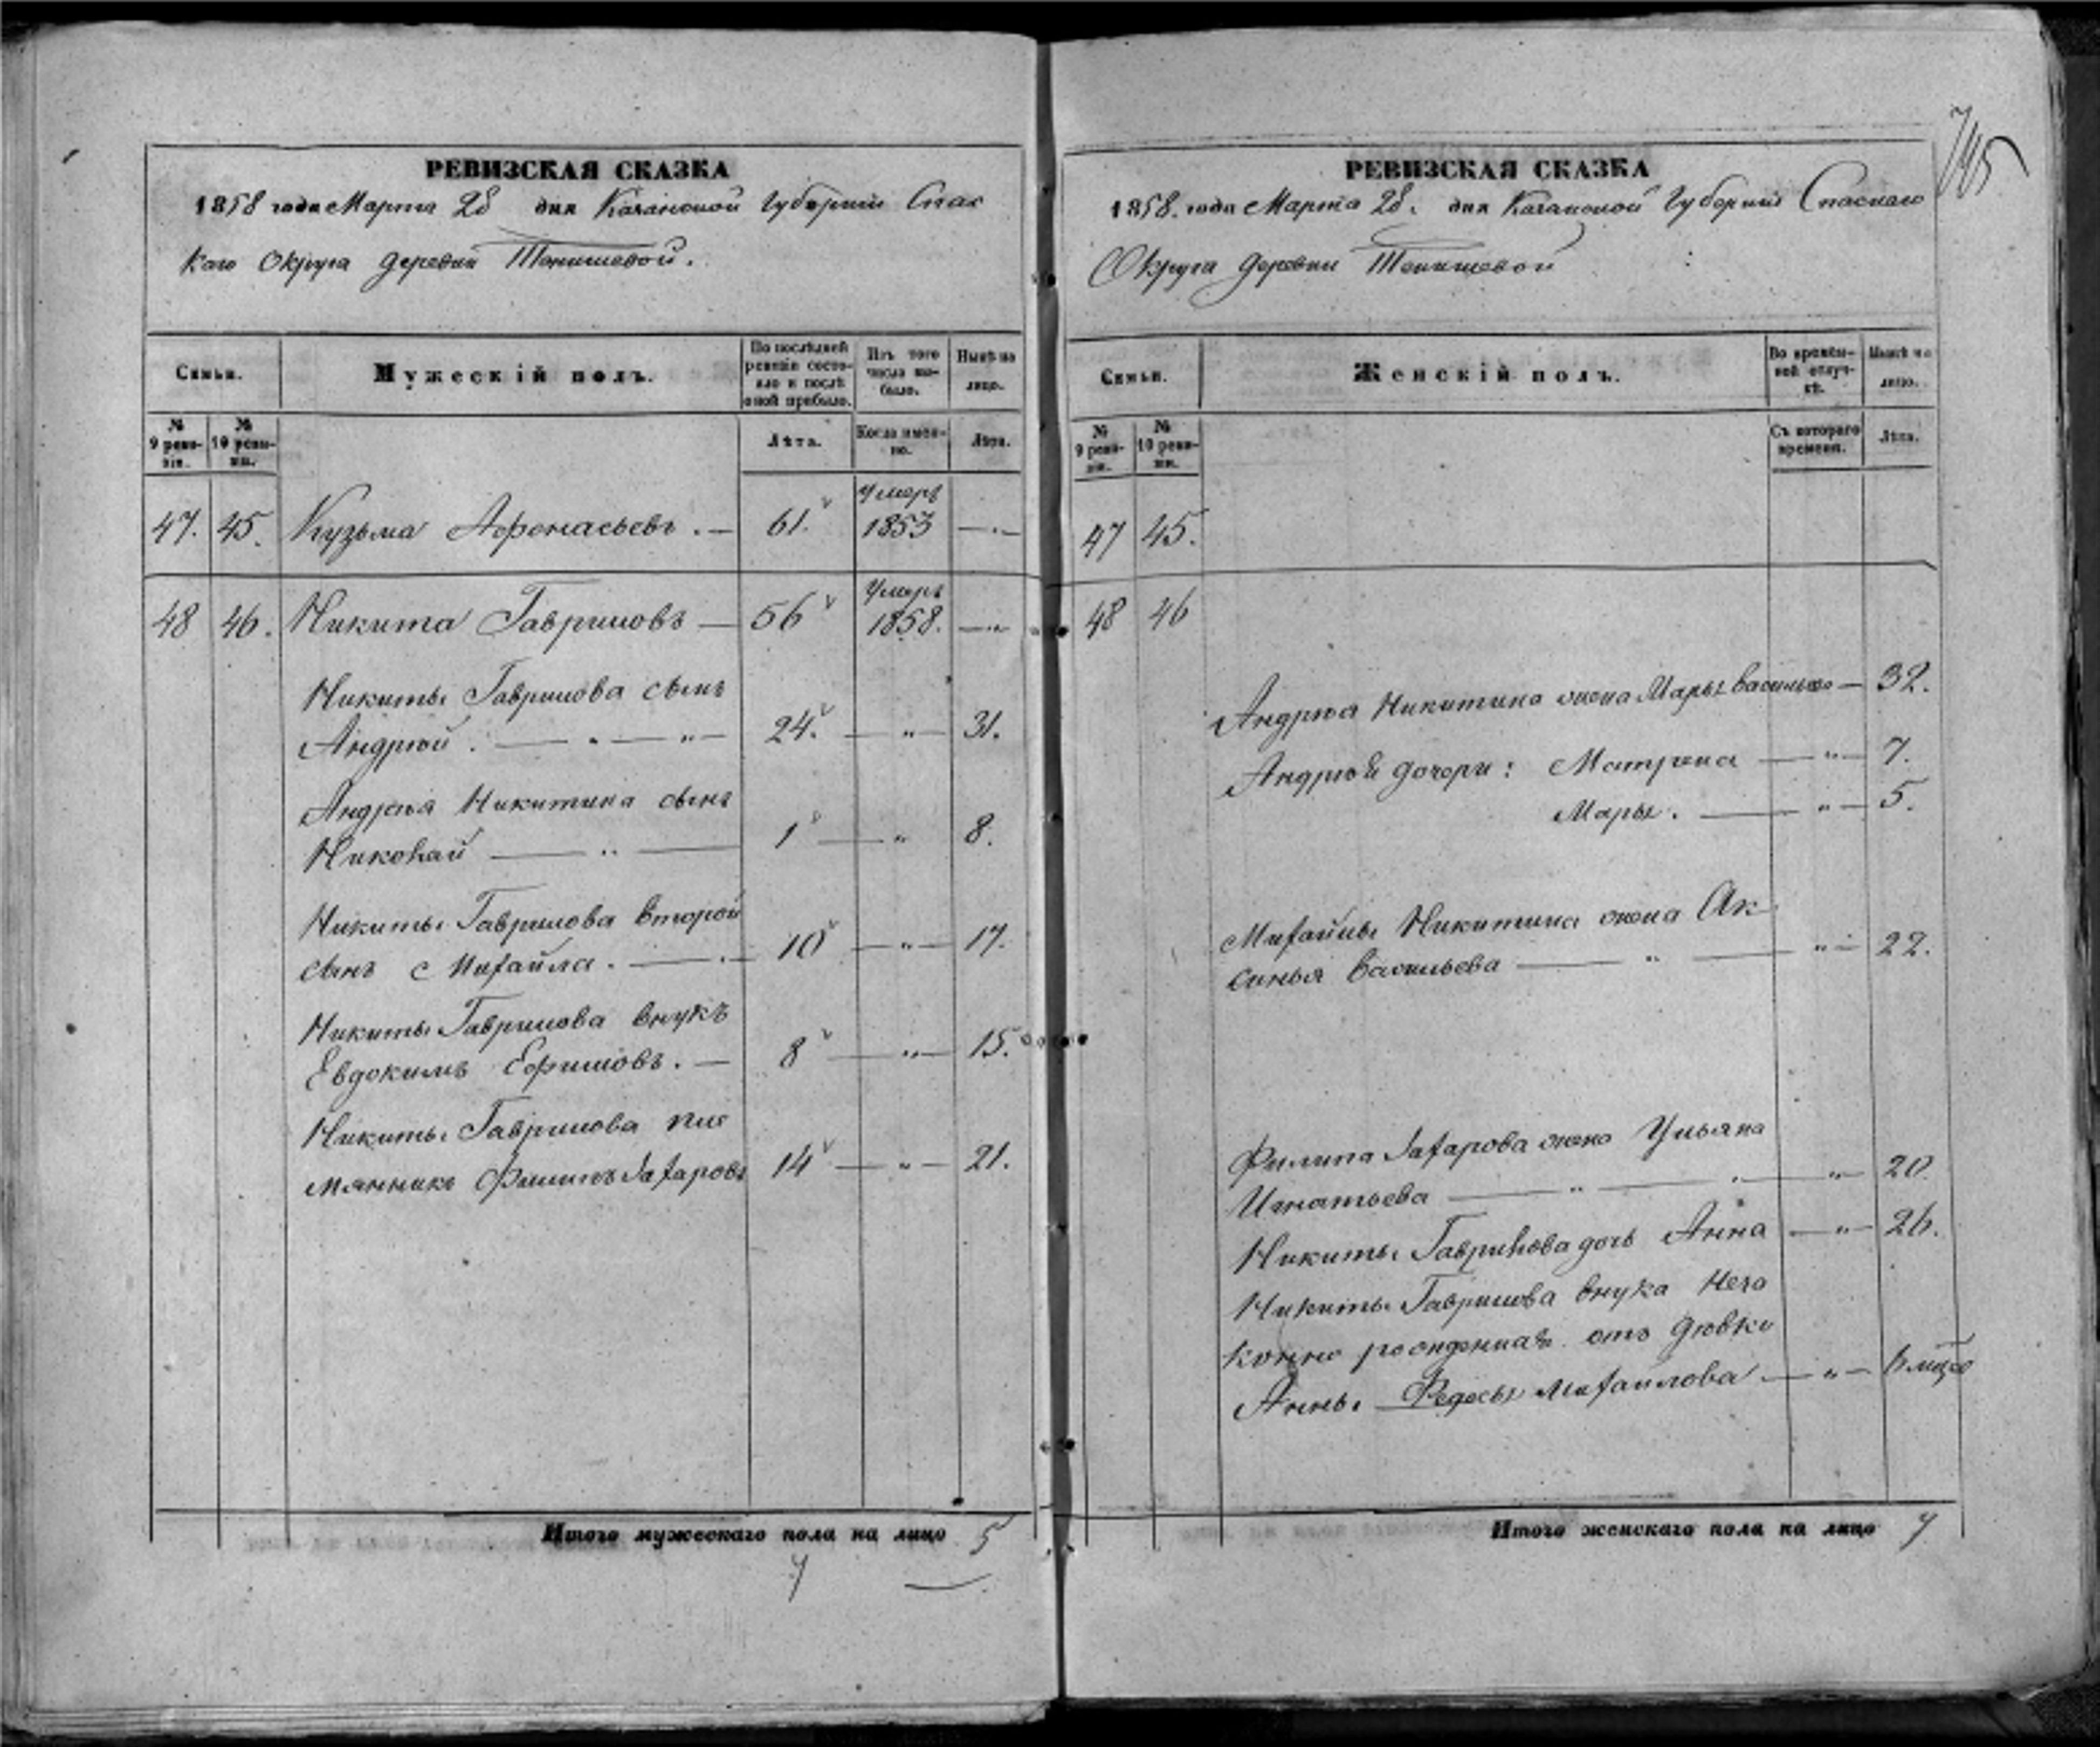 РЕВИЗСКАЯ СКАЗКА
1858 года Марта 28 дня Казанской Губернии Спас
каго Округа деревни Танишевой.
Семьи.
Мужескій полъ.
По послѣдней ревизіи состояло и послѣ оной прибыло.
Изъ того числа выбыло.
Нынѣ на лицо.
№ 9 ревизіи.
№ 10 ревизіи.
Лѣта.
Когда именно.
Лѣта.
47. 45. Кузьма Афонасьевъ. — 61. Умеръ 1853 —
48 46. Никита Гавриловъ — 56 Умеръ 1858. — „
Никиты Гаврилова сынъ
Андрей. — „ — 24. — „ — 31.
Андрея Никитина сынъ
Николай — „ — 1 — „ 8.
Никиты Гаврилова второй
сынъ Михайла. — 10 — „ — 17.
Никиты Гаврилова внукъ
Евдокимъ Ефимовъ. — 8 — „ — 15.
Никиты Гаврилова пле
мянникъ Филипъ Захаровъ 14 — „ — 21.
Итого мужескаго пола на лицо 5
7
745
РЕВИЗСКАЯ СКАЗКА
1858. года Марта 28. дня Казанской Губерніи Спаскаго
Округа деревни Танишевой
Семьи.
Женскій полъ.
Во временной отлучкѣ.
Нынѣ на лицо.
№ 9 ревизіи.
№ 10 ревизіи.
Съ котораго времени.
Лѣта.
47 45.
48 46
Андрея Никитина жена Марья Васильева — 32.
Андрея дочери: Матрена — „ — 7.
Марья. — „ — 5.
Михайлы Никитина жена Ак
синья Васильева — „ — „ — 22.
Филипа Захарова жена Ульяна
Игнатьева — „ — „ — 20.
Никиты Гаврилова дочь Анна — „ — 26.
Никиты Гаврилова внука неза
конно рожденная отъ девки
Анны Федосья Михайлова — „ —
Итого женскаго пола на лицо 7